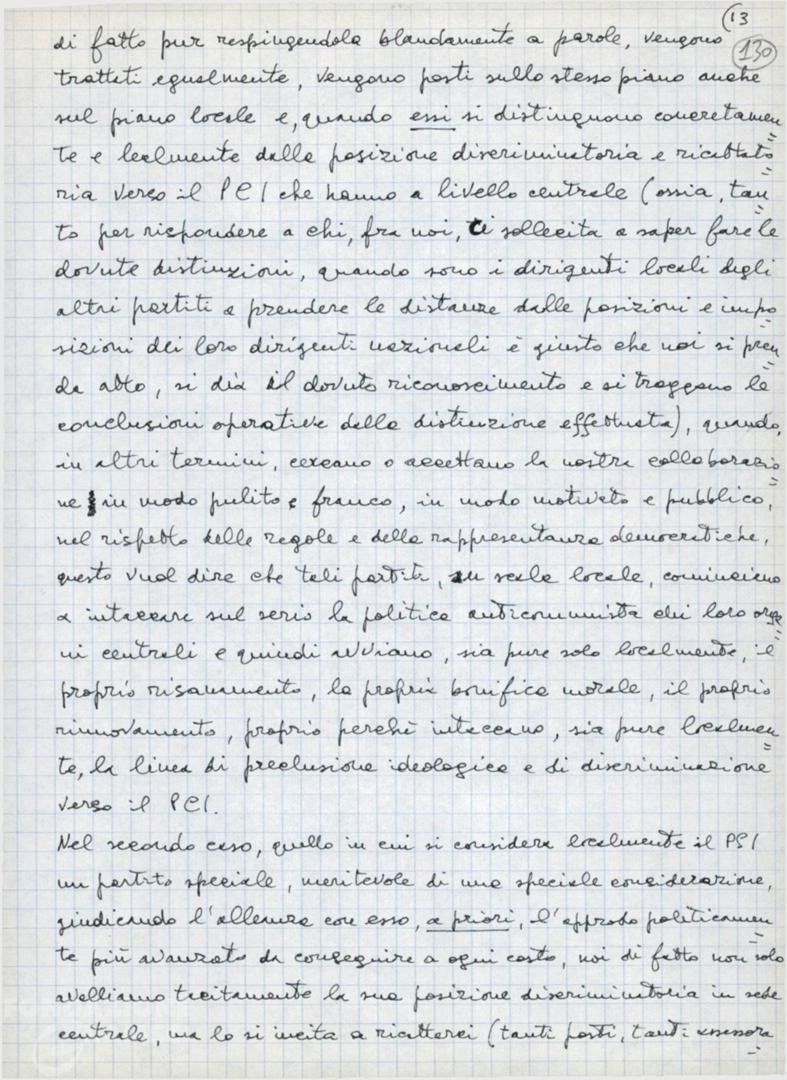 (13
130
di fatto pur respingendola blandamente a parole, vengono
trattati egualmente, vengono posti sullo stesso piano anche
sul piano locale e, quando essi si distinguono concretamen
te e lealmente dalla posizione discriminatoria e ricattato
ria verso il PCI che hanno a livello centrale (ossia, tan
to per rispondere a chi, fra noi, ci sollecita a saper fare le
dovute distinzioni, quando sono i dirigenti locali degli
altri partiti a prendere le distanze dalle posizioni e impo
sizioni dei loro dirigenti nazionali è giusto che noi si pren
da atto, si dia il dovuto riconoscimento e si traggano le
conclusioni operative della distinzione effettuata), quando,
in altri termini, cercano o accettano la nostra collaborazio
ne in modo pulito e franco, in modo motivato e pubblico,
nel rispetto delle regole e della rappresentanza democratiche,
questo vuol dire che tali partiti, su scala locale, cominciano
a intaccare sul serio la politica anticomunista dei loro orga
ni centrali e quindi avviano, sia pure solo localmente, il
proprio risanamento, la propria bonifica morale, il proprio
rinnovamento, proprio perchè intaccano, sia pure localmen
te, la linea di preclusione ideologica e di discriminazione
verso il PCI.
Nel secondo caso, quello in cui si considera localmente il PSI
un partito speciale, meritevole di una speciale considerazione,
giudicando l'alleanza con esso, a priori, l'approdo politicamen
te più avanzato da conseguire a ogni costo, noi di fatto non solo
avalliamo tacitamente la sua posizione discriminatoria in sede
centrale, ma lo si incita a ricattarci (tanti posti, tanti assessora